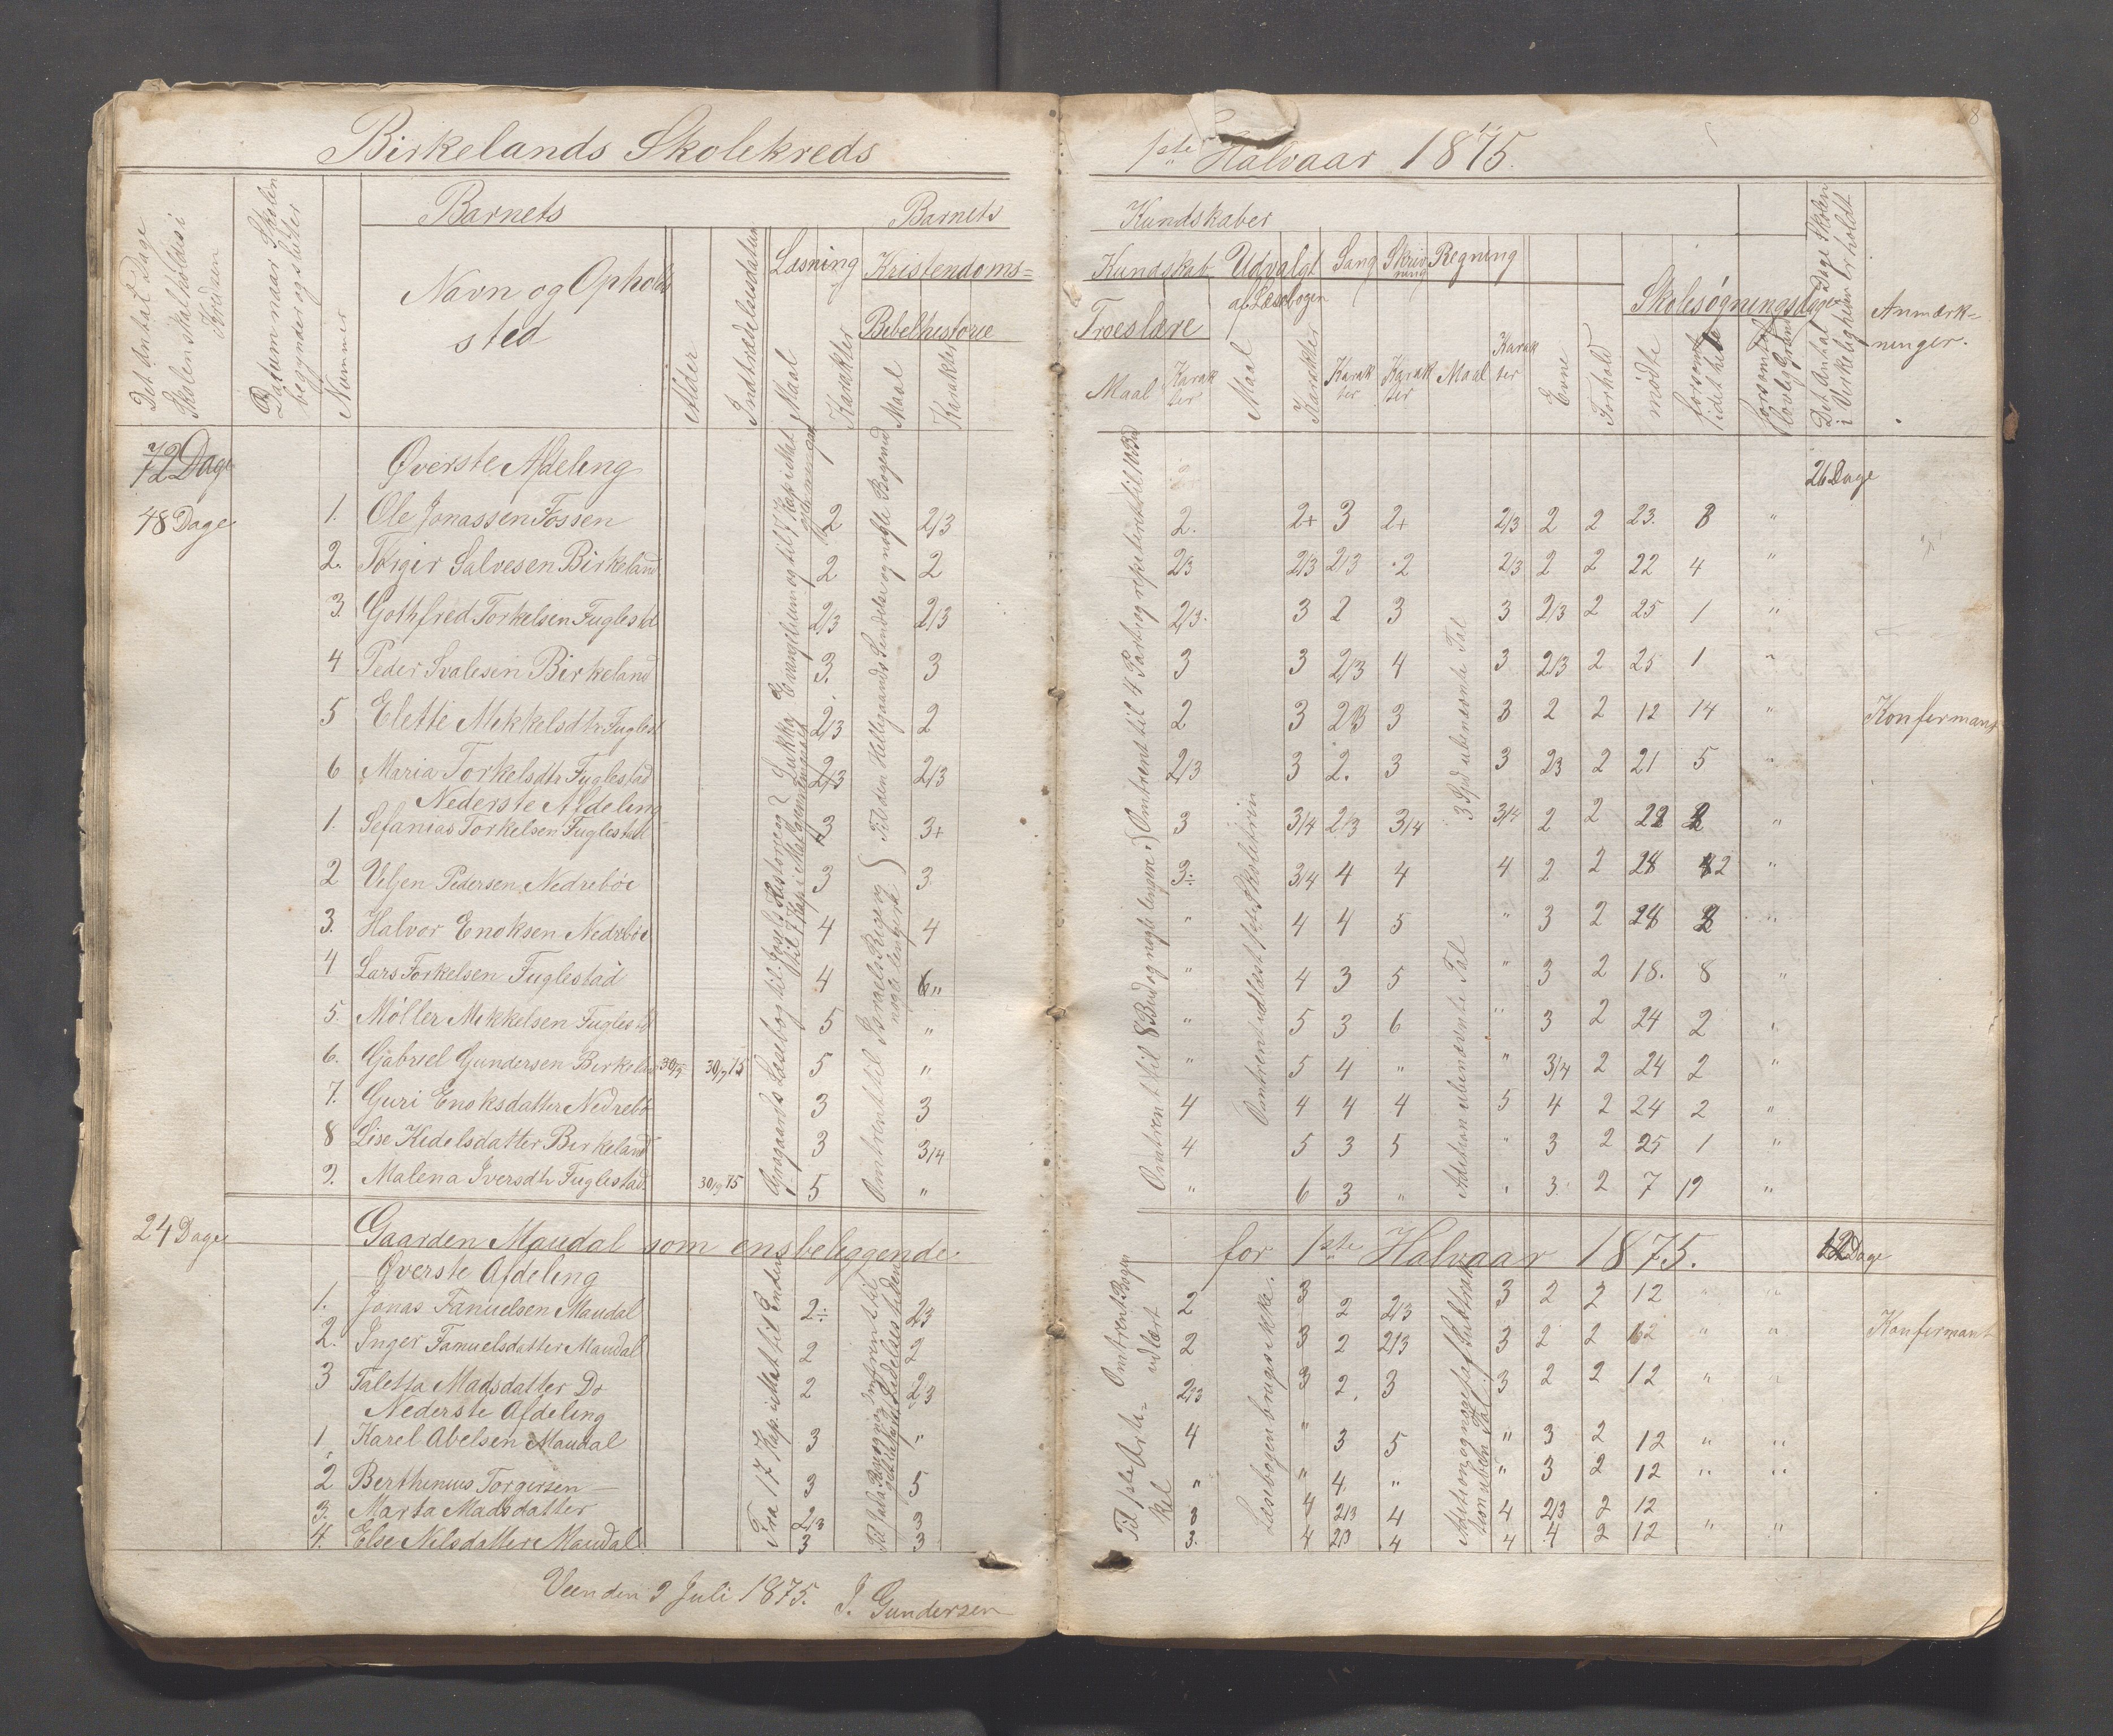 Birkelands Skolekreds
1ste Halvaar 1875.
Det Antal Dage Skolen skal holdes i Kredsen
Datum naar Skolen begynder og slutter
Nummer
Barnets
Navn og Opholdssted
Alder
Indtrædelsesdatum
Barnets
Læsning
Maal
Karakter
Kristendoms=
Bibelhistorie
Maal
Karakter
Kundskaber
Kundskab
Troeslære
Maal
Karakter
Udvalgt af Læsebogen
Maal
Karakter
Sang
Karakter
Skrivning
Karakter
Regning
Maal
Karakter
Evne
Forhold
Skolesøgningsdage
mødte
forsømte i det hele
forsømte af lovlig Grund
Det Antal Dage Skolen i Virkeligheden er holdt
Anmærkninger.
72 Dage
Øverste Afdeling
26 Dage
48 Dage
1. Ole Jonassen Fossen 2 2/3 2. 2+ 3 2+ 2/3 2 2 23. 3 "
2. Torger Salvesen Birkeland 2 2 2/3 2/3 2/3 2 2/3 2 2 22 4 "
3. Gothfred Torkelsen Fuglestd 2/3 2/3 2/3 3 2 3 3 2/3 2 25 1 "
4 Peder Svalesen Birkeland 3. 3 3 3 2/3 4 3 2/3 2 25 1 "
5 Elette Mikkelsdtr Fuglest 2/3 2 2 3 2/3 3 3 2 2 12 14 " Konfermant
6 Maria Torkelsdtr Fuglestad 2/3 2/3 2/3 3 2. 3 3 2/3 2 21 5 "
Nederste Afdeling
1. Sefanias Torkelsen Fuglestad 3 3+ 3 3/4 2/3 3/4 3/4 2 2 22 2 "
2 Veljen Pedersen Nedreböe 3 3 3÷ 3/4 4 4 4 2 2 28 2 "
3. Halvor Enoksen Nedreböe 4 4 " 4 4 5 " 3 2 28 2 "
4 Lars Torkelsen Fuglestad 4 " " 4 3 5 " 3 2 18. 8 "
5. Møller Mikkelsen Fuglestd 5 " " 5 3 6 " 3 2 24 2 "
6. Gabriel Gundersen Birkeland 30/75 5 " " 5 4 " " 3/4 2 24 2 "
7. Guri Enoksdatter Nedrebö 3 3 4 4 4 4 5 4 2 24 2 "
8 Lise Kidelsdatter Birkeland 3 3/4 4 5 3 5 " 3 2 25 1 "
9. Malena Iversdtr Fuglestad. 5 " " 6 3 " " 3 2 7 19 "
Lukka Evangelium og til 7 Kap i Mat
Til den Helligaands Sendelse og nogle Bogen ud
Omtrent til Israels Rige og noget lengere
Omtrent til 4 Part og repeteret til 10 Bud
Omtrent til 8 Bud og nogle lengere
Omtrent udlæst 1ste Skoletrin
3 Spd ubenævnte Tal
Adition ubenævnte Tal
24 Dage
Gaarden Maudal som ensbeliggende
for 1ste Halvaar 1875.
12 Dage
Øverste Afdeling
1. Jonas Fanuelsen Maudal 2÷ 2/3 2 3 2 2/3 3 2 2 12 " "
2. Inger Fanuelsdatter Maudal 2 2 2 3 2 2/3 3 2 2 12 " " Konfermant
3 Taletta Madsdatter Do 2 2/3 2/3 3 2. 3 3 2 2 12 " "
Nederste Afdeling
1. Karel Abelsen Maudal 3 " 4 " 3 5 " 3 2 12 " "
2 Berthinius Torgersen — 3 5 " " 4. " " 3 2 12 " "
3. Marta Madsdatter 2/3 3 3 4 2/3 4 4 2/3 2 12
4. Else Nilsdatter Maudal 3 3 3. 4 2/3 4 4 4 2 12 " "
Fra 17 Kap i Mat til Enden
Omtrent Bogen udlært
Til 1ste Artikel
Læsebogen bruges ikke.
Veen den 3 Juli 1875. J. Gundersen